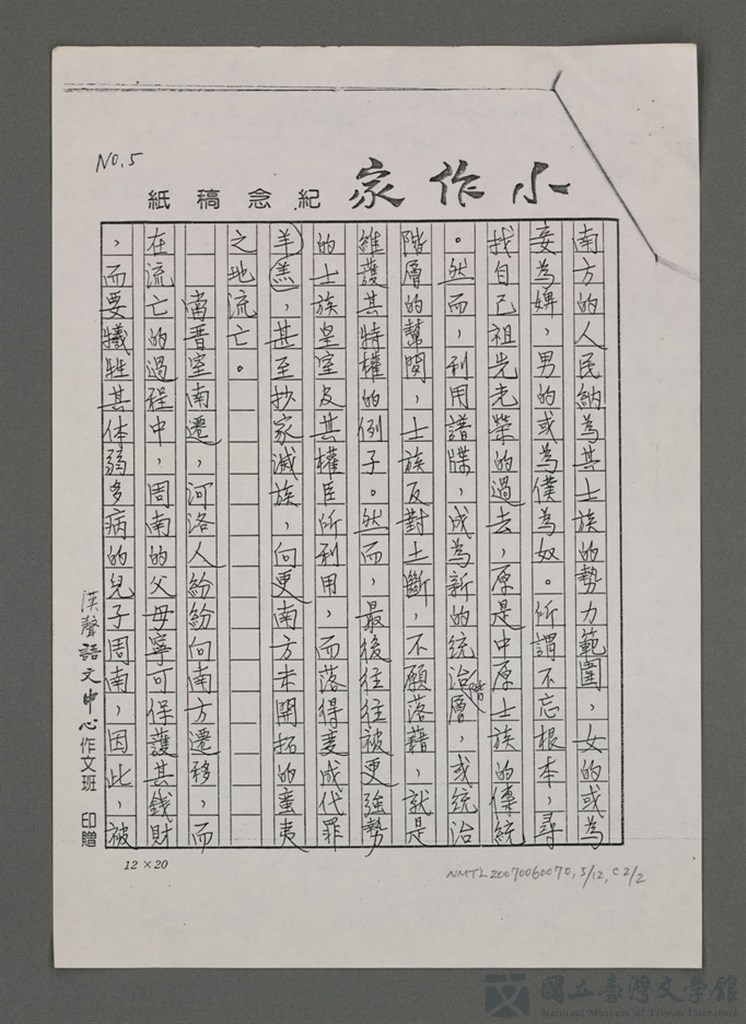 No.5
小作家紀念稿紙
南方的人民納為其士族的勢力範圍，女的或為
妾為婢，男的或為僕為奴。所謂不忘根本，尋
找自己祖先光榮的過去，原是中原士族的傳統
。然而，利用譜牒，成為新的統治階層，或統治
階層的幫閒，士族反對土斷，不願落藉，就是
維護其特權的例子。然而，最後往往被更強勢
的士族皇室及其權臣所利用，而落得變成代罪
羊羔，甚至抄家滅族，向更南方未開拓的蛮夷
之地流亡。
當晋室南遷，河洛人紛紛向南方遷移，而
在流亡的過程中，周南的父母寧可保護其錢財
，而要犧牲其体弱多病的兒子周南，因此，被
漢聲語文中心作文班 印贈
12×20
NMTL20070060070, 5/12, C2/2
國立臺灣文學館
National Museum of Taiwan Literature